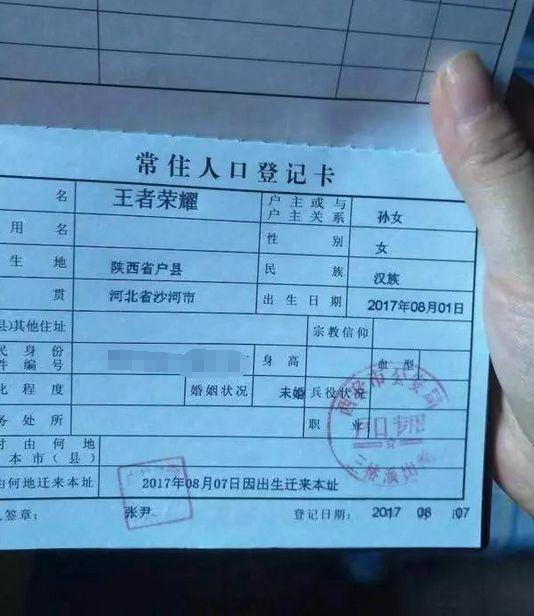 常住人口登记卡
名 王者荣耀 户主或与户主关系 孙女
用名 性别 女
生地 陕西省户县 民族 汉族
贯 河北省沙河市 出生日期 2017年08月01日
县)其他住址 宗教信仰
民身份件编号 身高 血型
化程度 婚姻状况 未婚 兵役状况
务处所 职业
时由何地
本市(县)
由何地迁来本址 2017年08月07日因出生迁来本址
人签章: 张尹 登记日期: 2017 08 07
西安市公安局